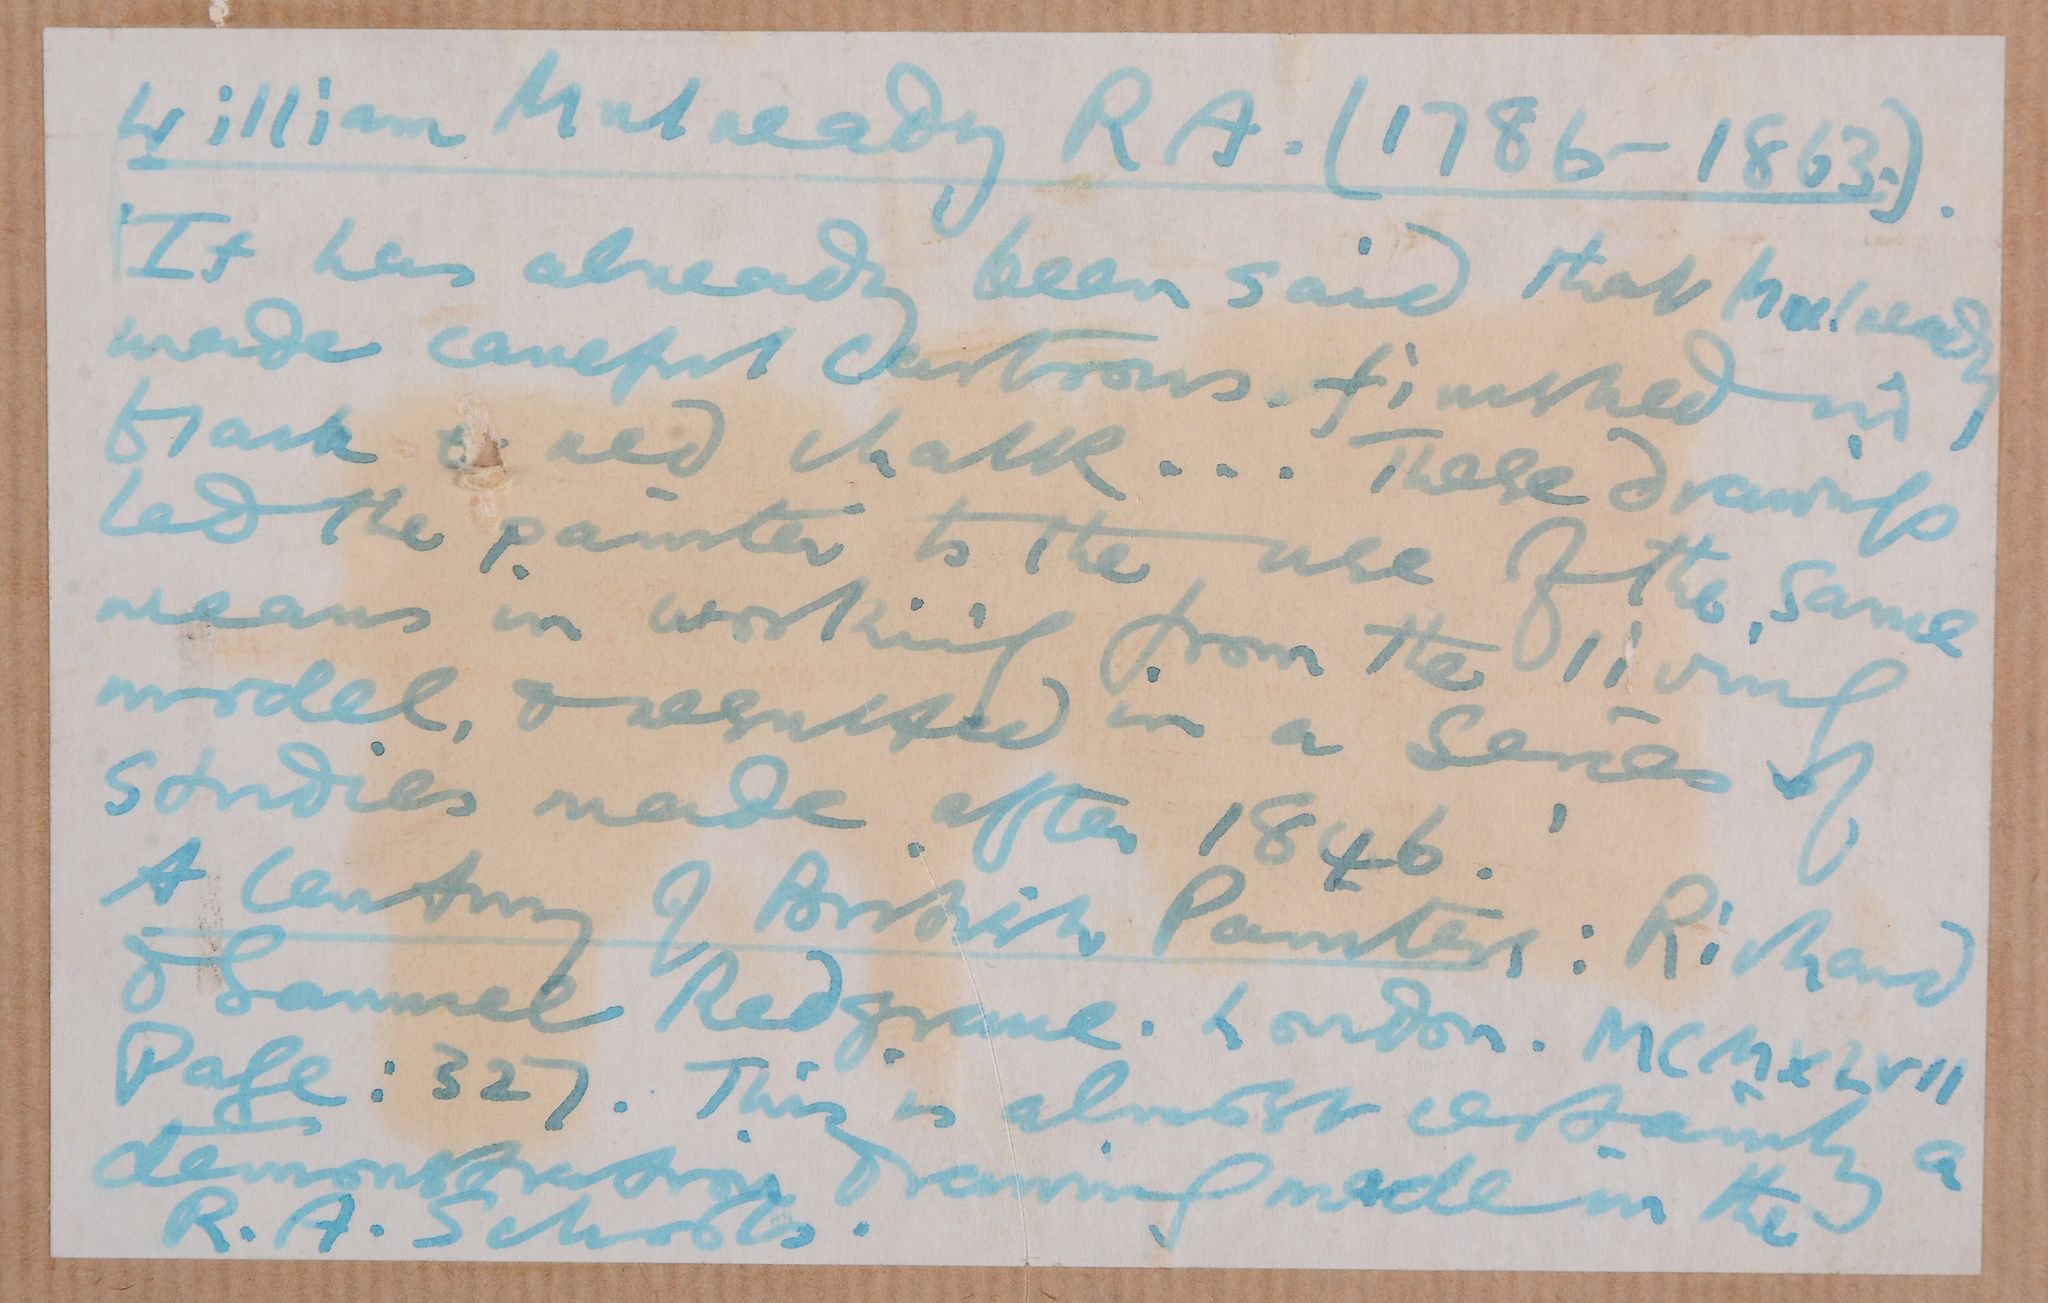 William Mulready R A. (1786-1863).
'It has already been said that Mulready
made careful cartoons finished in
black & red chalk ... These drawings
led the painter to the use of the same
means in working from the living
model, & resulted in a series of
studies made after 1846.'
A Century of British Painters: Richard
& Samuel Redgrave. London. MCMXLVII
Page: 327. This is almost certainly a
demonstration drawing made in the
R. A. Schools.